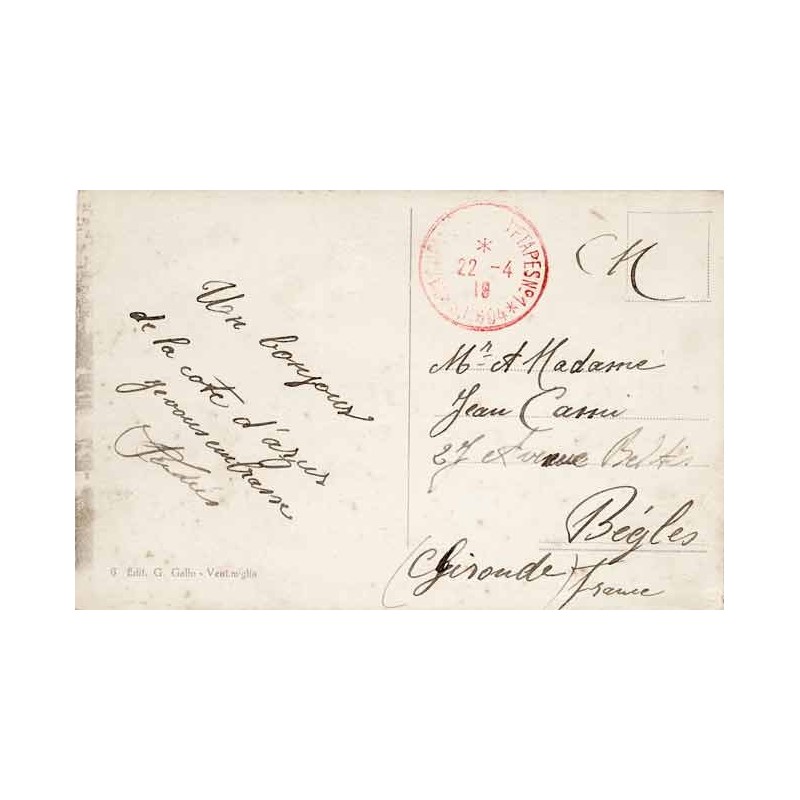 Un bonjour
de la cote d'azur
je vous embrasse
6 Edit. G. Gallo - Ventimiglia
22 -4
18
ETAPES No 1 *
604 *
CM
Mr et Madame
Jean
27 Avenue
Bègles
(Gironde)
France